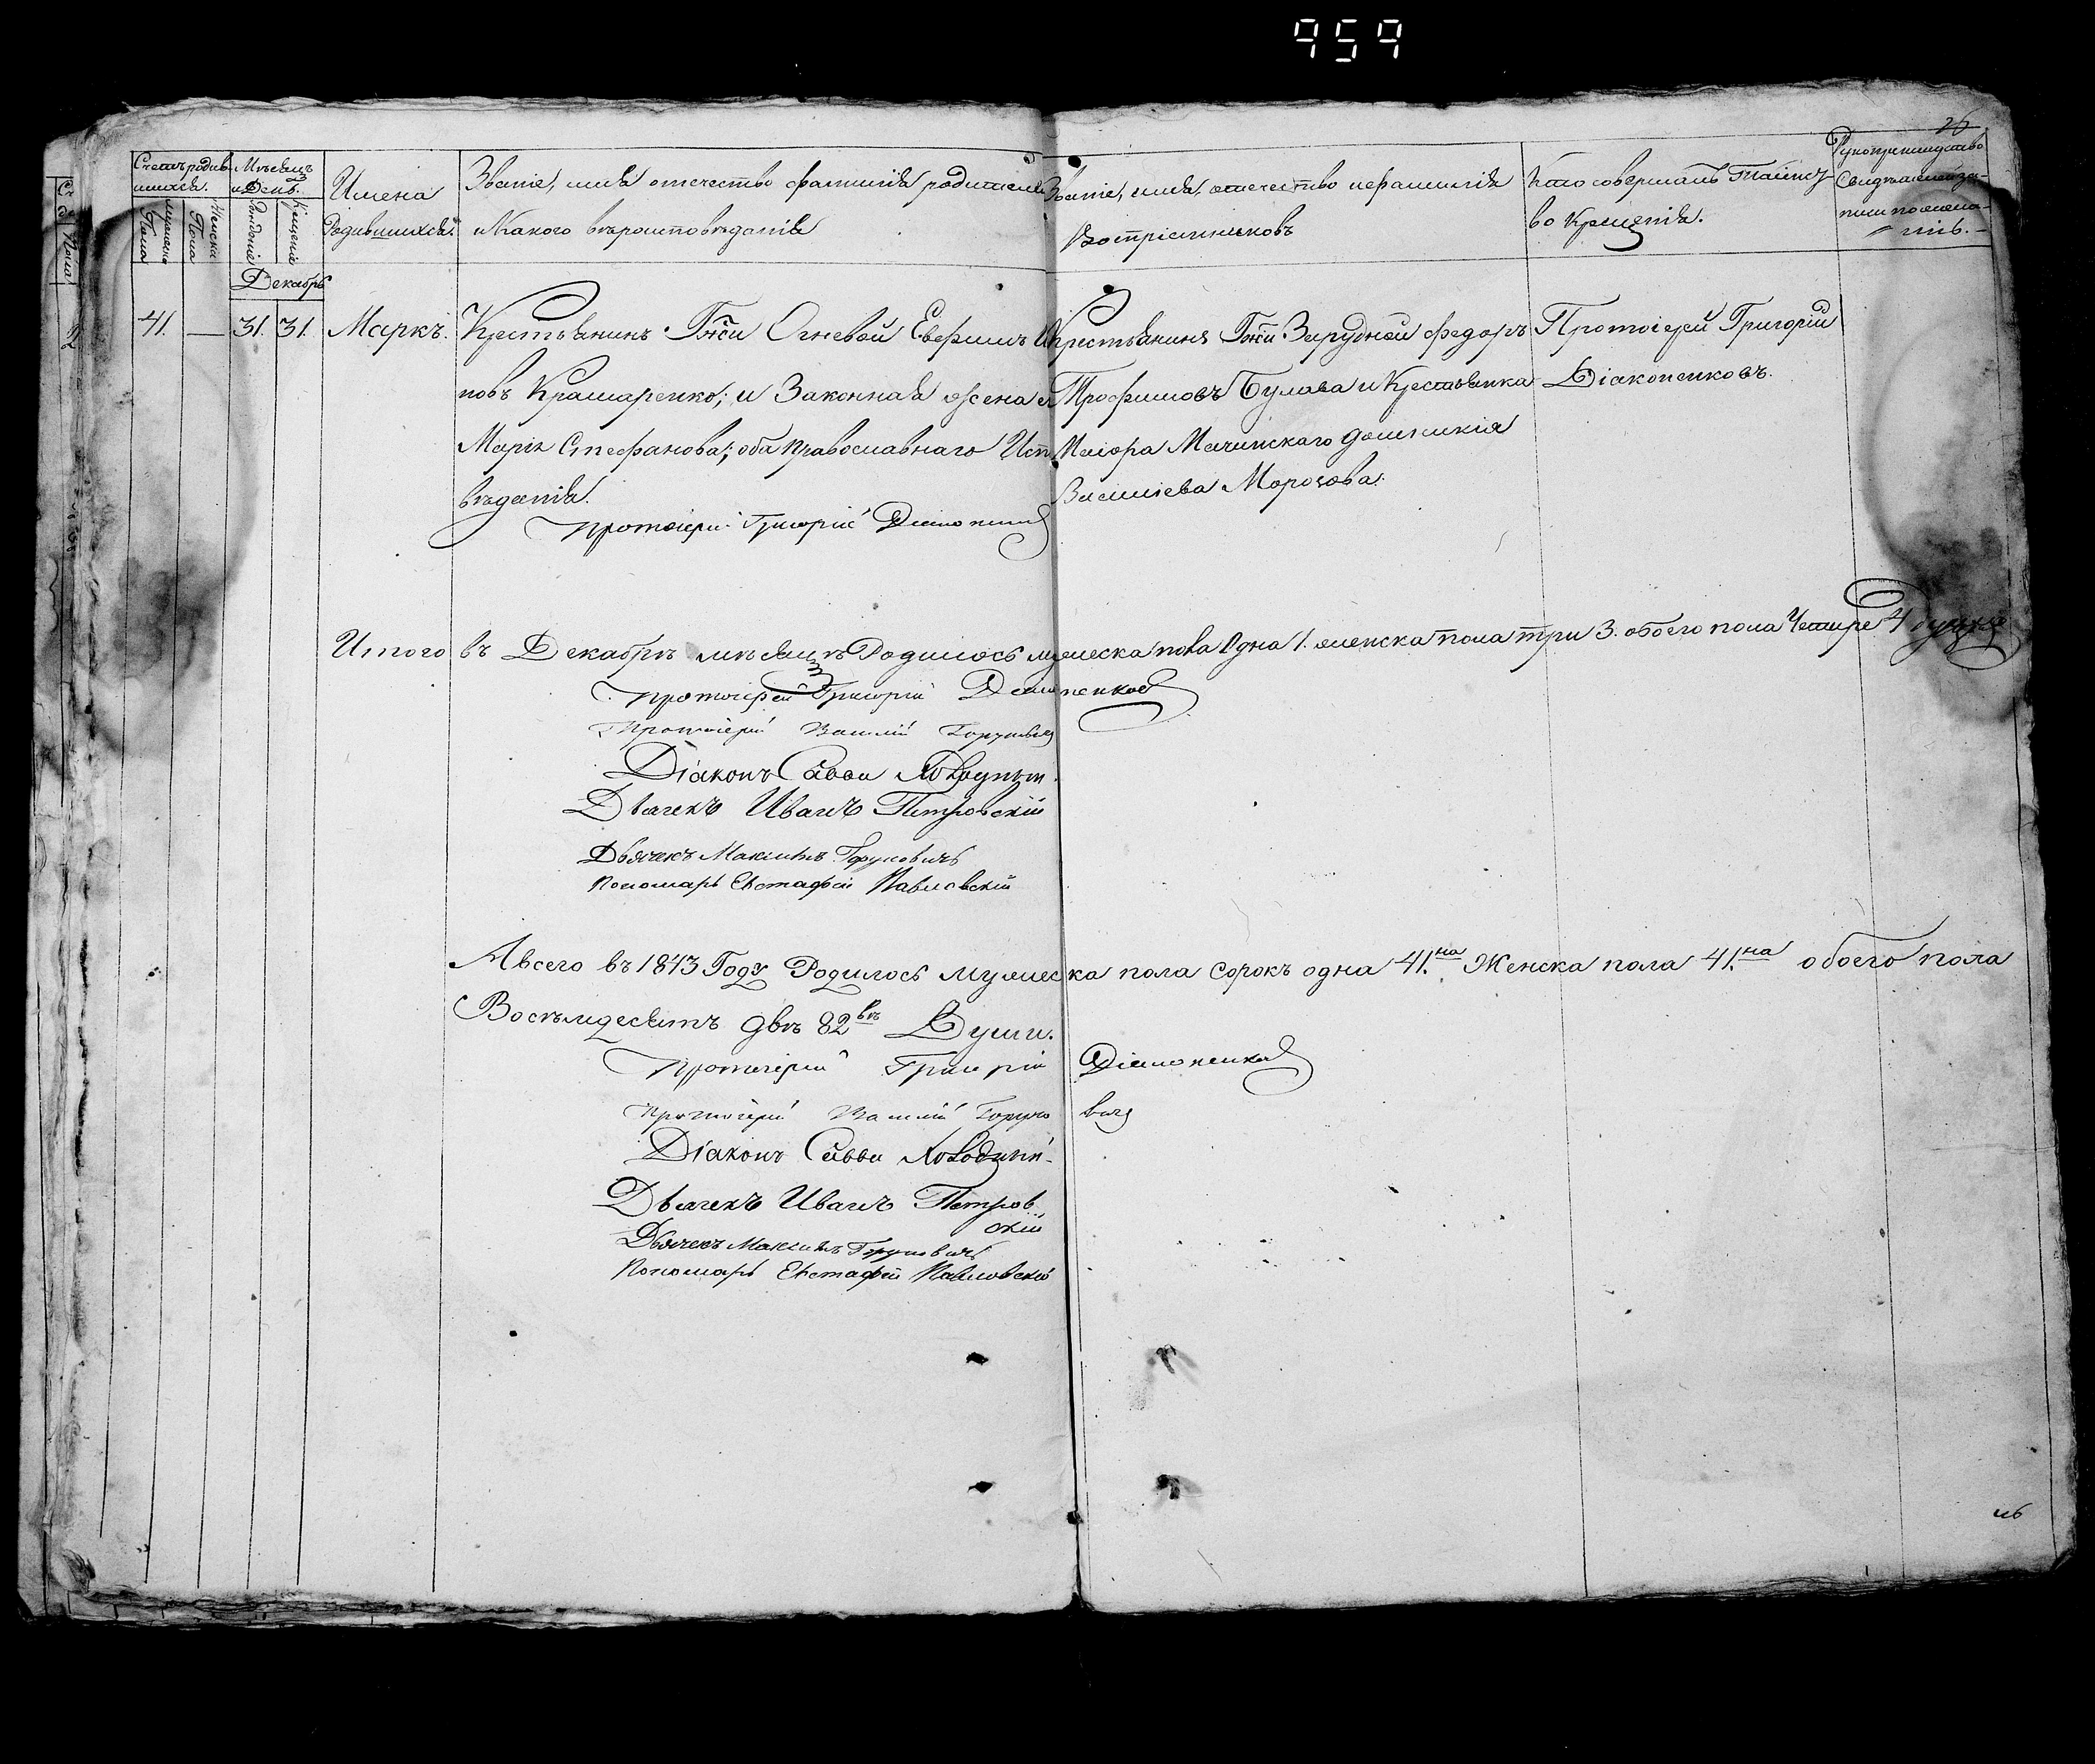 959
26
Счетъ родив-
шихся.
Мужеска Пола
Женска Пола
Мѣсяцъ
и День.
Рожденіе
Крещеніе
Имена
Родившихся.
Званіе, имя отечество фамилія родителей
и Какого вѣроисповѣданія
Званіе, имя, отечество и фамилія
Воспріемниковъ
Кто совершалъ Таинс-
во Крещенія.
Рукоприкладство
Свидѣтелей за-
писи по жела-
нію.
Декабрь
41. — 31. 31. Маркъ.
Крестьянинъ Гжи Огневой Ефимъ
новъ Крамаренко; и Законная жена
Марія Стефанова; оба Православнаго Исп
вѣданія.
Протоіерей Григорій Діаконенковъ
Крестьянинъ Гжи Зарудной Федоръ
Трофимовъ Булава и Крестьянка
Маіора Мачинскаго
Василіева Морозова.
Протоіерей Григорій
Діаконенковъ.
Итого въ Декабрѣ мѣсяцѣ Родилось мужеска пола Одна 1. женска пола три 3. обоего пола Четыре 4 души
Протоіерей Григорій Діаконенковъ
Протоіерей Василій
Діаконъ Савва Холодный
Дьячекъ Иванъ Петровскій
Дьячекъ Максимъ
Пономарь Евстафій Павловскій
А всего въ 1843 Году Родилось мужеска пола сорокъ одна 41.на Женска пола 41.на обоего пола
Восемдесятъ двѣ 82вѣ Души.
Протоіерей Григорій Діаконенковъ
Протоіерей Василій
Діаконъ Савва Холодный
Дьячекъ Иванъ Петров
скій
Дьячекъ Максимъ
Пономарь Евстафій Павловскій